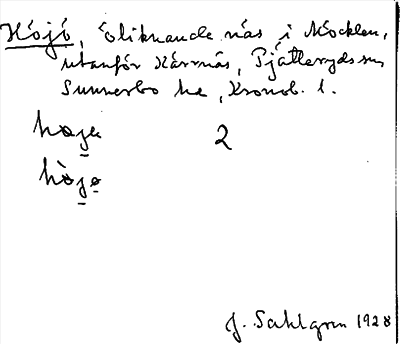 Höjö, öliknande näs i Möckeln,
utanför Kärrnäs, Pjätteryds sn
Sunnerbo hd, Kronob. l.
2
J. Sahlgren 1928